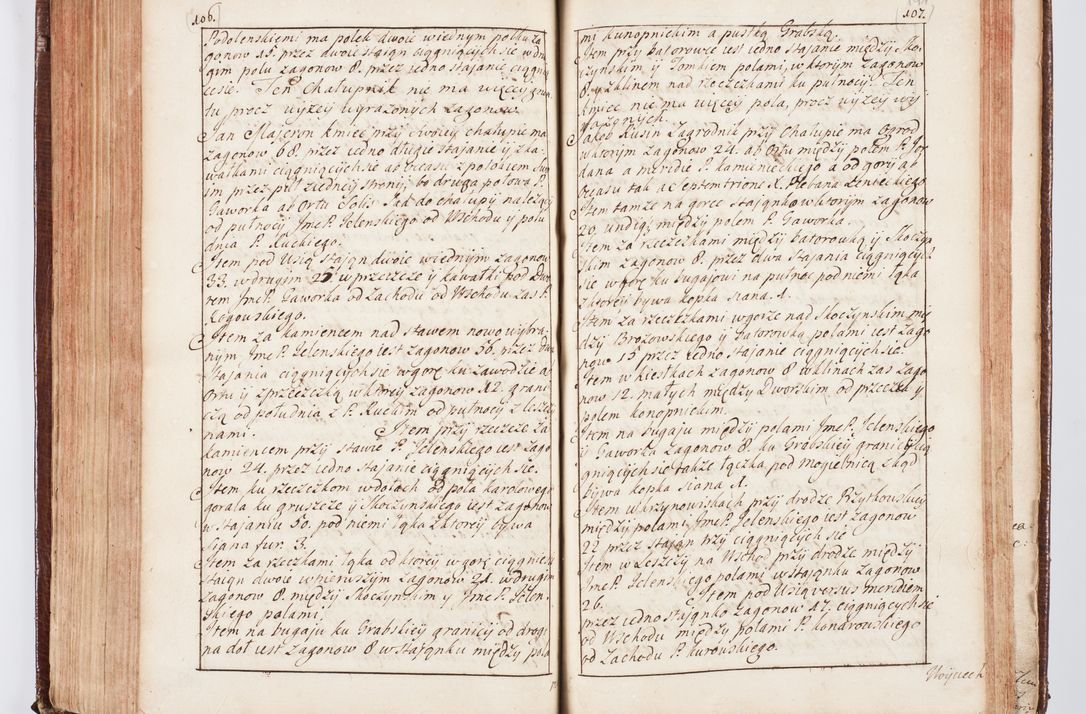 106.
Podolenskiemi ma polek dwoie wiednym polku za
gonow 15. przez dwoie staiąn ciągniących sie w dru
gim polu zagonow 8. przez iedno stajanie ciągną
cesie. Ten Chałupnik nie ma więcey grun
tu procz wyżey wyrażonych zagonow.
Jan Majeron kmiec przy swoiey chałupie ma
zagonow 68. przez iedno długie stajanie y z ka
wałkami ciągniącychsie ab occasu z potokiem
im przez poł ziedney strony, bo druga połowa P.
Gaworka ab Ortu Solis Sad do chałupy należący
od pułnocy Jmc P. Jelenskiego od Wschodu y połu
dnia P. Ruckiego.
Item pod Usią staian dwoie wiednym zagonow
33. wdrugim 25 w przeczcze y kawałki pod Dwo
rem Jmc P. Gaworka od Zachodu od Wschodu zas P.
Rogowskiego.
Item za kamiencem nad stawem nowo wybra
nym Jmc P. Jelenskiego iest zagonow 56. przez dwa
stajania ciągniącychsie wgorę ku zawodzie ab
Ortu y zprzeczcką wktorey zagonow 12. grani
czą od południa z P. Ruckim od pułnocy z leszczy
nami. Item przy rzeczce za
kamiencem przy stawie P. Jelenskiego iest zago
now 24. przez iedno stajanie ciągniącychsie.
Item ku rzeczkom wdołach od pola karolowego
gorala ku gruszce y Skoczynskiego iest zagonow
w stajaniu 30. pod niemi łąka zktorey bywa
siana fur. 3.
Item za rzeczkami łąka od ktorey wgorę ciągnien
staiąn dwoie wpierwszym zagonow 21. wdrugim
zagonow 8. między Skoczynskim y Jmc P. Jelen
skiego polami.
Item na bugaju ku Grabskiey granicy od drogi
na doł iest zagonow 8 w stająnku między pola
107.
mi kunopnickim a pustką Grabską.
Item przy batorowce iest iedno stajanie między Sko
czynskim y Tomkiem polami, wktorym zagonow
8. y zklinem nad rzeczkami ku pułnocy. Ten
kmiec nie ma więcey pola, procz wyżey wy
rażonych.
Jakob Rusin Zagrodnik przy Chałupie ma Ogrod
wktorym zagonow 24. ab Ortu między polem P. Jor
dana a meridie P. kamienickiego a od gory ab
occasu tak a Septemtrione X. Plebana
Item tamże na gorce stająnko wktorym zagonow
20. undiq; między polem P. Gaworka.
Item za rzeczkami między batorowką y Skoczyn
skim zagonow 8. przez dwa stajania ciągniących
sie wgorę ku bugajowi na pułnoc pod niemi łąka
zktorey bywa kopka siana. 1.
Item za rzeczkami wgorze nad Skoczynskim mię
dzy Brozowskiego y batorowką polami iest zago
now 15 przez iedno stajanie ciągniącychsie.
Item w kiestkach zagonow 8 wklinach zas zago
now 12. małych między Dworskim od przeczek y
polem konopnickim.
Item na bugaju między polami Jmc P. Jelenskiego
y Gaworka zagonow 8. ku Grabskiey granicy cią
gniącychsie także łączka pod mogielnicą zkąd
bywa kopka siana 1.
Item wkrzynowiskach przy drodze Przytkowskiey
między polamy Jmc P. Jelenskiego iest zagonow
22 przez staian trzy ciągniących sie
Item w Leszczy na Wschod przy drodze między
Jmc P. Jelenskiego polami wstająnku zagonow
26. Item pod Usią versus meridiem
przez iedno stająnko zagonow 17. ciągniącychsie
od Wschodu między polami P. kondrowskiego
od Zachodu P. kurowskiego.
Woyciech